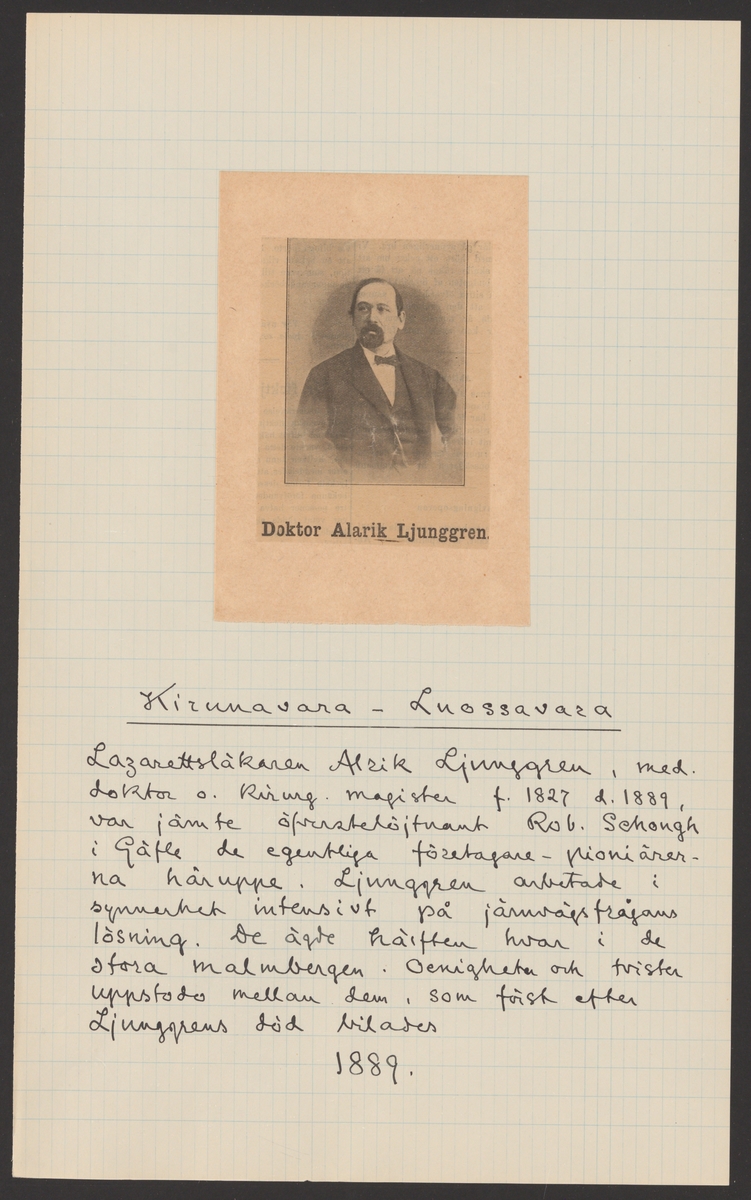 Doktor Alarik Ljunggren.
Kirunavara – Luossavara
Lazarettsläkaren Alrik Ljunggren, med.
doktor o. Kirurg. magister f. 1827 d. 1889,
var jämte öfverstelöjtnant Rob. Schough
i Gäfle de egentliga företagare-pioniärer-
na häruppe. Ljunggren arbetade i
synnerhet intensivt på järnvägsfrågans
lösning. De ägde hälften hvar i de
stora malmbergen. Oenigheter och tvister
uppstodo mellan dem, som först efter
Ljunggrens död bilades
1889.